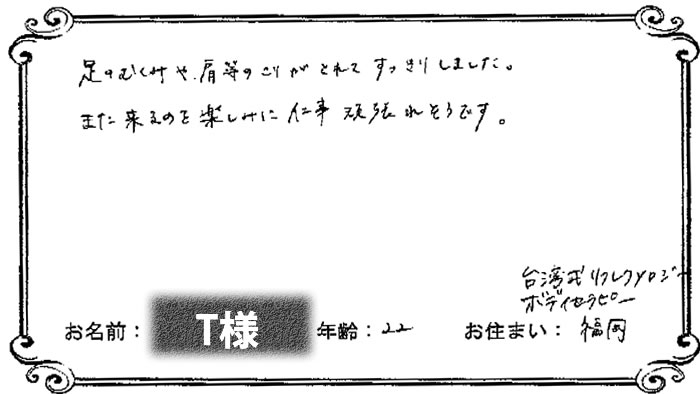 足のむくみや、肩等のこりがとれて すっきりしました。
また来るのを楽しみに 仕事 頑張れそうです。
台湾式リフレクソロジー
ボディセラピー
お名前： T様 年齢：22 お住まい： 福岡